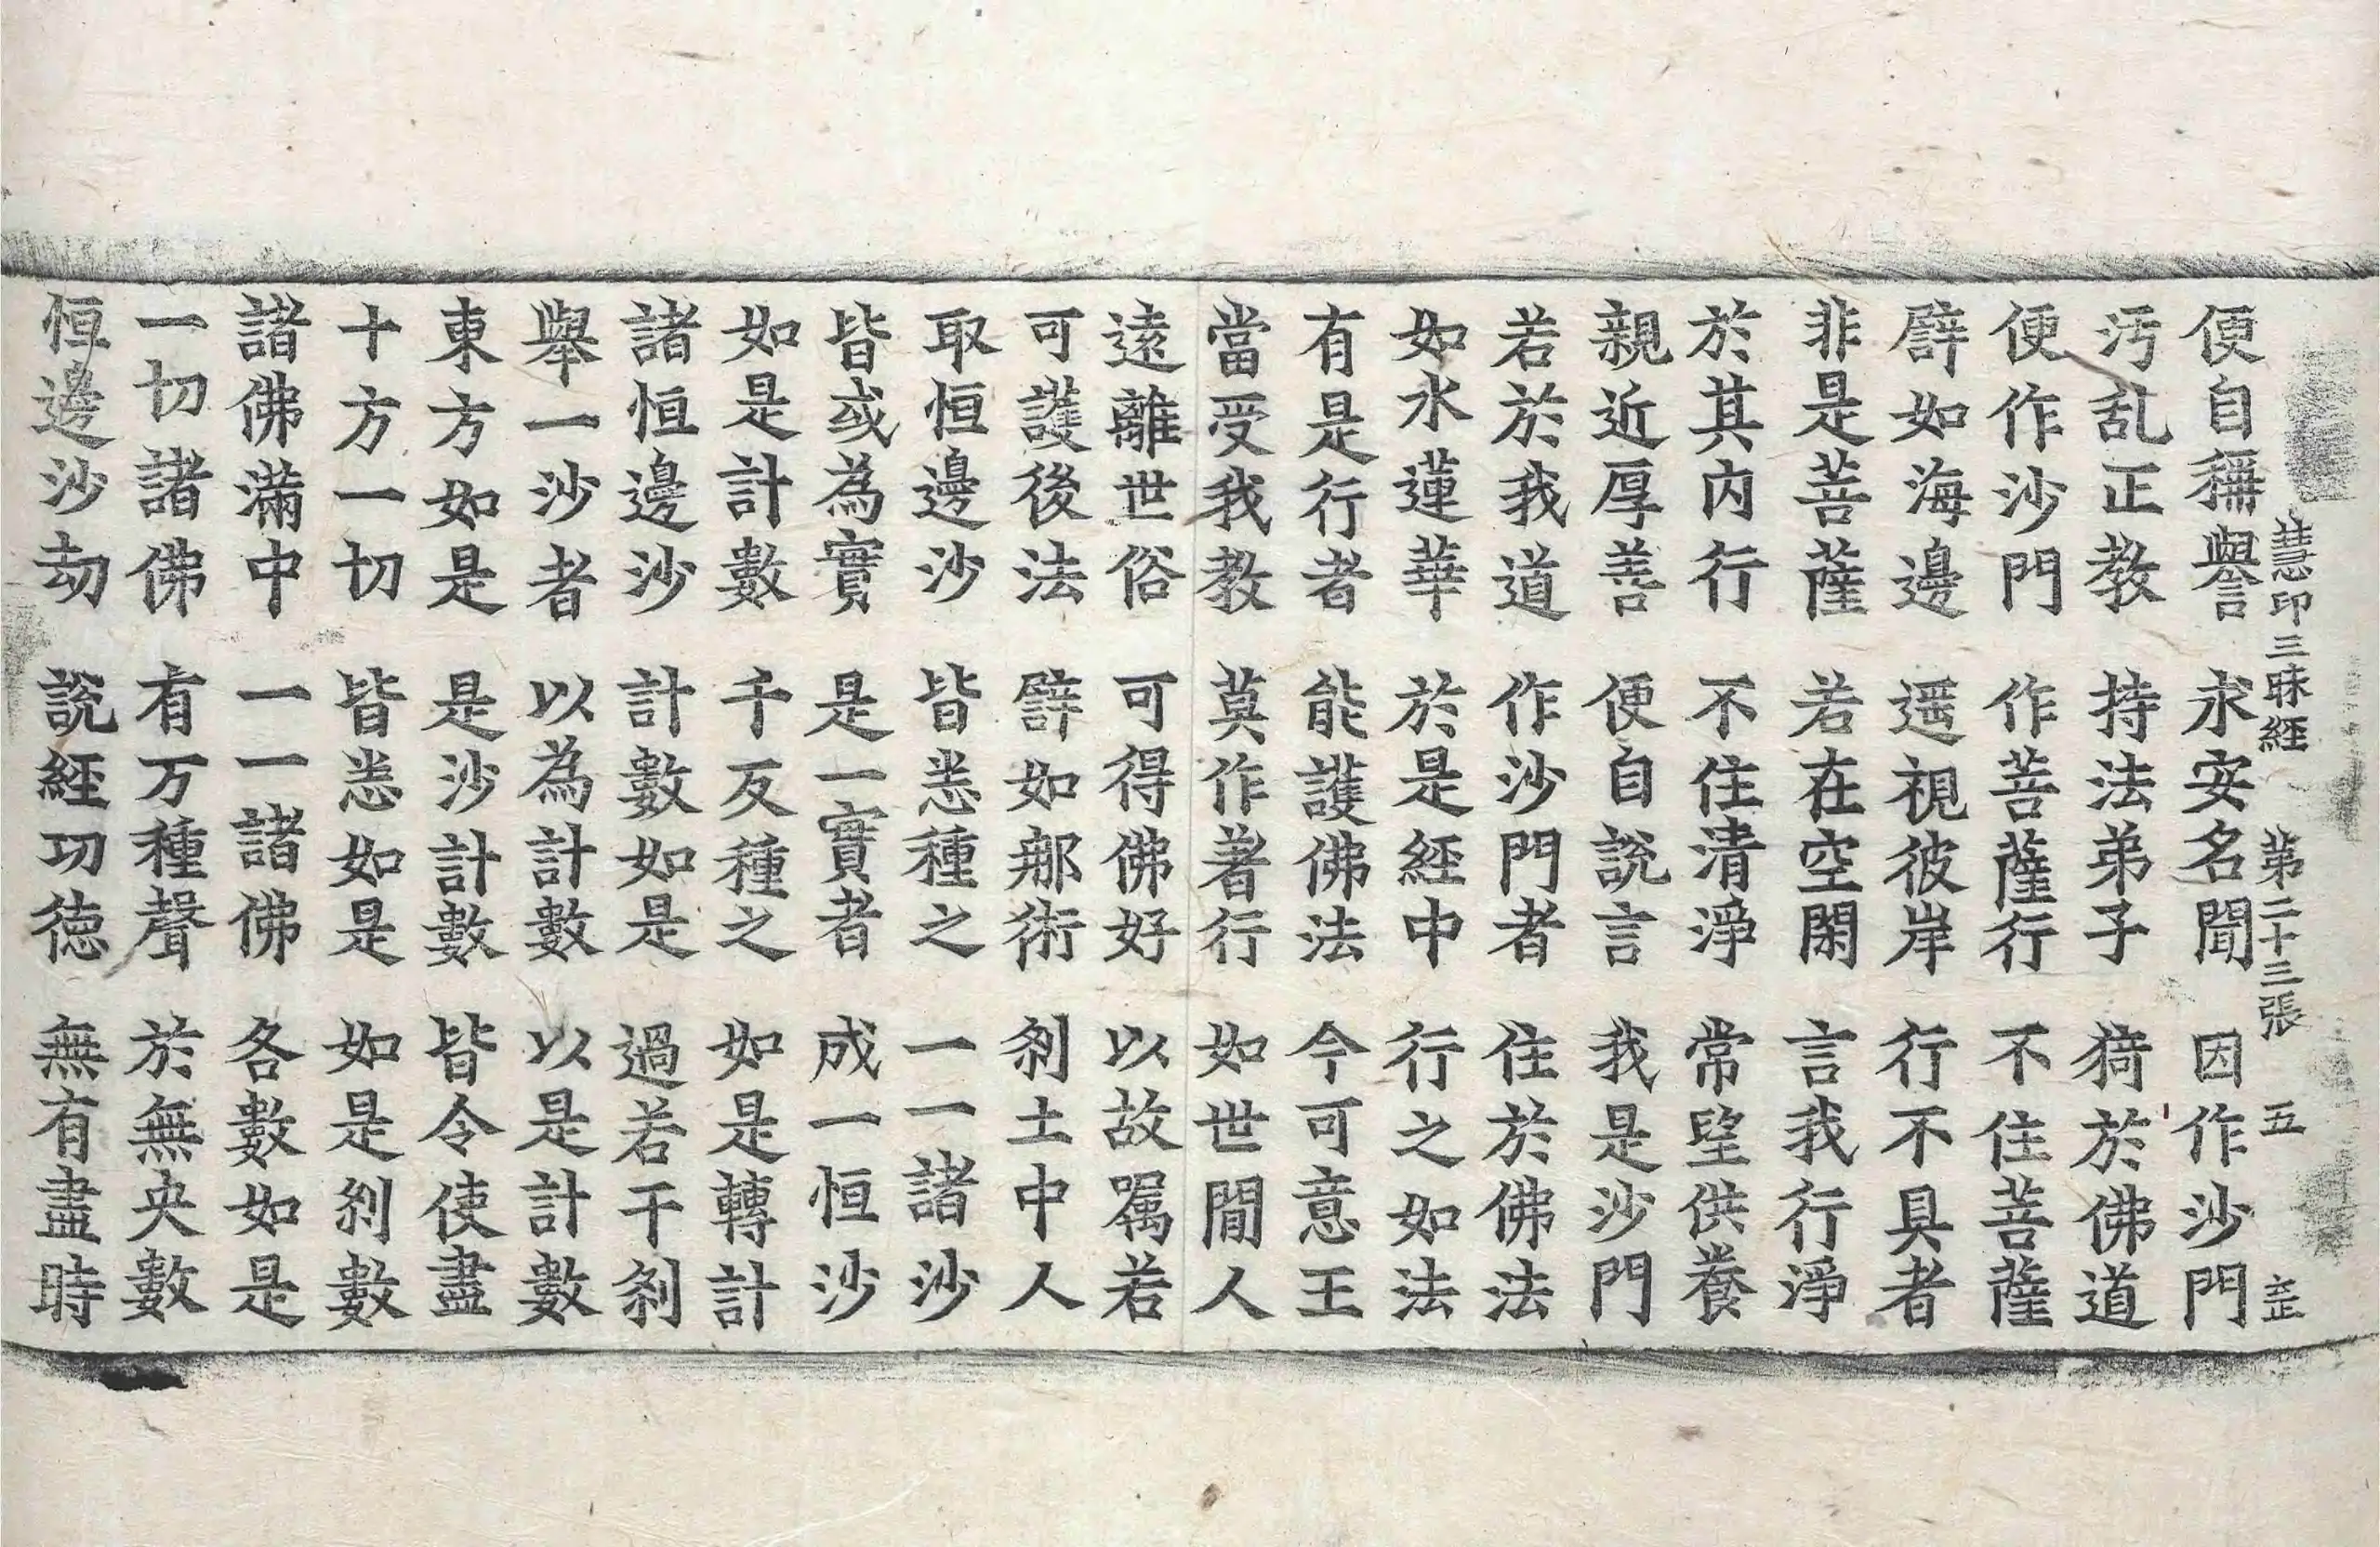 慧印三昧經　第二十三張　五
便自稱譽　求安名聞　因作沙門
汚乱正教　持法弟子　猗於佛道
便作沙門　作菩薩行　不住菩薩
譬如海邊　遥視彼岸　行不具者
非是菩薩　若在空閑　言我行淨
於其内行　不住清淨　常望供養
親近厚善　便自説言　我是沙門
若於我道　作沙門者　住於佛法
如水蓮華　於是經中　行之如法
有是行者　能護佛法　今可意王
當受我教　莫作著行　如世間人
遠離世俗　可得佛好　以故嘱若
可護後法　譬如郍術　刹土中人
取恒邊沙　皆悉種之　一一諸沙
皆或為實　是一實者　成一恒沙
如是計數　千反種之　如是轉計
諸恒邊沙　計數如是　過若干刹
舉一沙者　以為計數　以是計數
東方如是　是沙計數　皆令使盡
十方一切　皆悉如是　如是刹數
諸佛滿中　一一諸佛　各數如是
一切諸佛　有万種聲　於無央數
恒邊沙劫　説經功徳　無有盡時